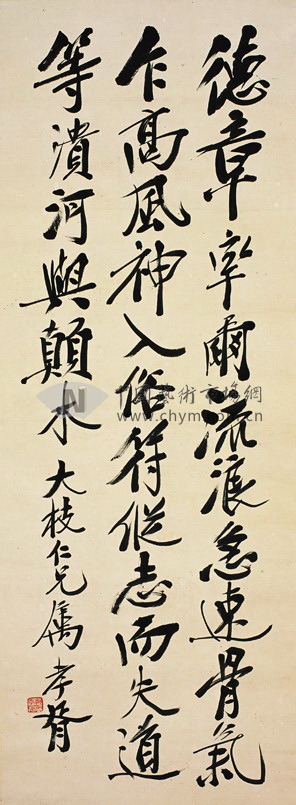 德章率爾流浪急速骨氣
乍高風神入俗符縱志而失道
等潰河與顛水
大枝仁兄属 孝胥
中國藝術市場網
www.chymor.cn